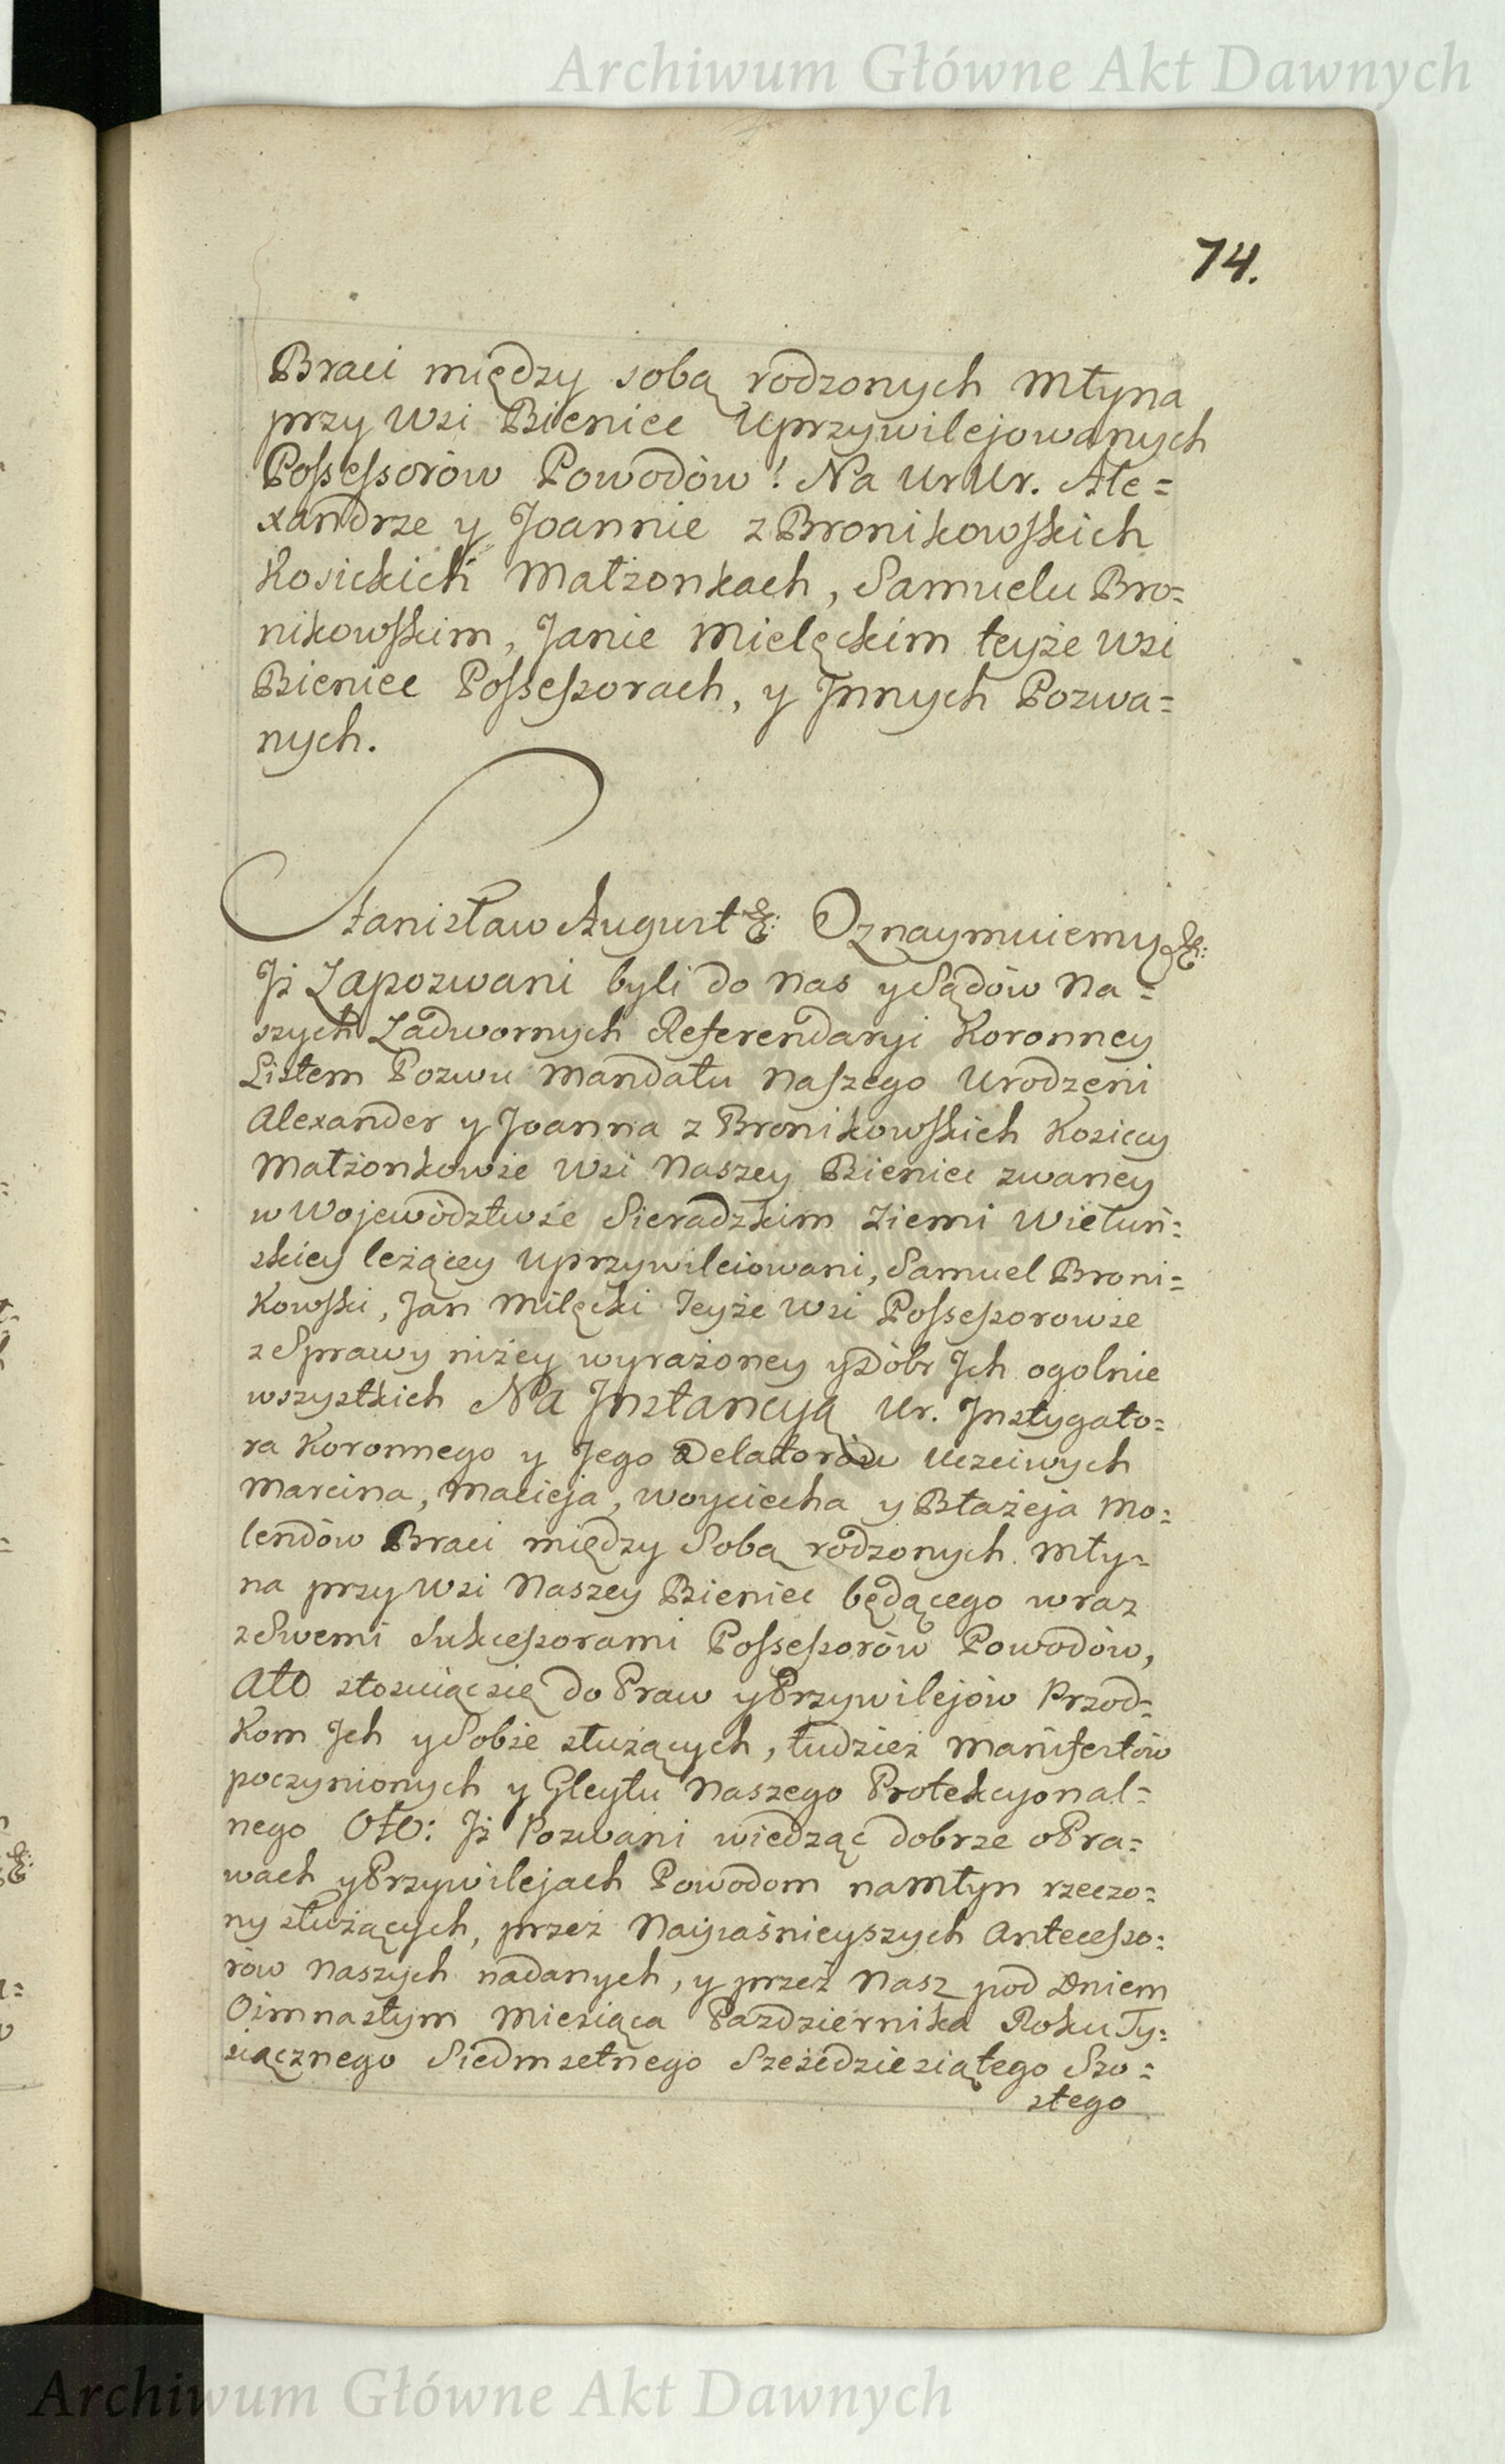 Archiwum Główne Akt Dawnych
74.
Braci między sobą rodzonych Młyna
przy Wsi Bieniec Uprzywilejowanych
Possessorów Powodów! Na Ur Ur. Ale=
xandrze y Joannie z Bronikowskich
Kosickich Małżonkach, Samuelu Bro=
nikowskim, Janie Mielęckim teyże Wsi
Bieniec Possessorach, y Innych Pozwa=
nych.
Stanisław August &: Oznaymuiemy &:
Iż Zapozwani byli do Nas y Sądów Na=
szych Zadwornych Referendaryi Koronney
Listem Pozwu Mandatu Naszego Urodzeni
Alexander y Joanna z Bronikowskich Kosiccy
Małżonkowie Wsi Naszey Bieniec zwaney
w Wojewòdztwie Sieradzkim Ziemi Wieluń=
skiey leżącey Uprzywileiowani, Samuel Broni=
Kowski, Jan Milęcki Teyże Wsi Possessorowie
z Sprawy niżey wyrażoney y Dóbr Ich ogolnie
wszystkich Na Instancyą Ur. Instygato=
ra Koronnego y Jego Delatorów Uczciwych
Marcina, Macieja, Woyciecha y Błażeja Mo=
lendów Braci między Sobą rodzonych Mły=
na przy Wsi Naszey Bieniec będącego wraz
z Swemi Sukcessorami Possessorów Powodów,
Ato stosuiąc się do Praw y Przywilejów Przod=
Kom Ich y Sobie służących, tudzież Manifestów
poczynionych y Gleytu Naszego Protekcyonal=
nego Oto: Iż Pozwani wiedząc dobrze o Pra=
wach y Przywilejach Powodom na Młyn rzeczo=
ny służących, przez Nayjaśnieyszych Antecesso=
rów Naszych nadanych, y przez Nasz pod Dniem
Osmnastym Miesiąca Pazdziernika Roku Ty=
siącznego Siedmsetnego Sześcdziesiątego Szo=
stego
Archiwum Główne Akt Dawnych